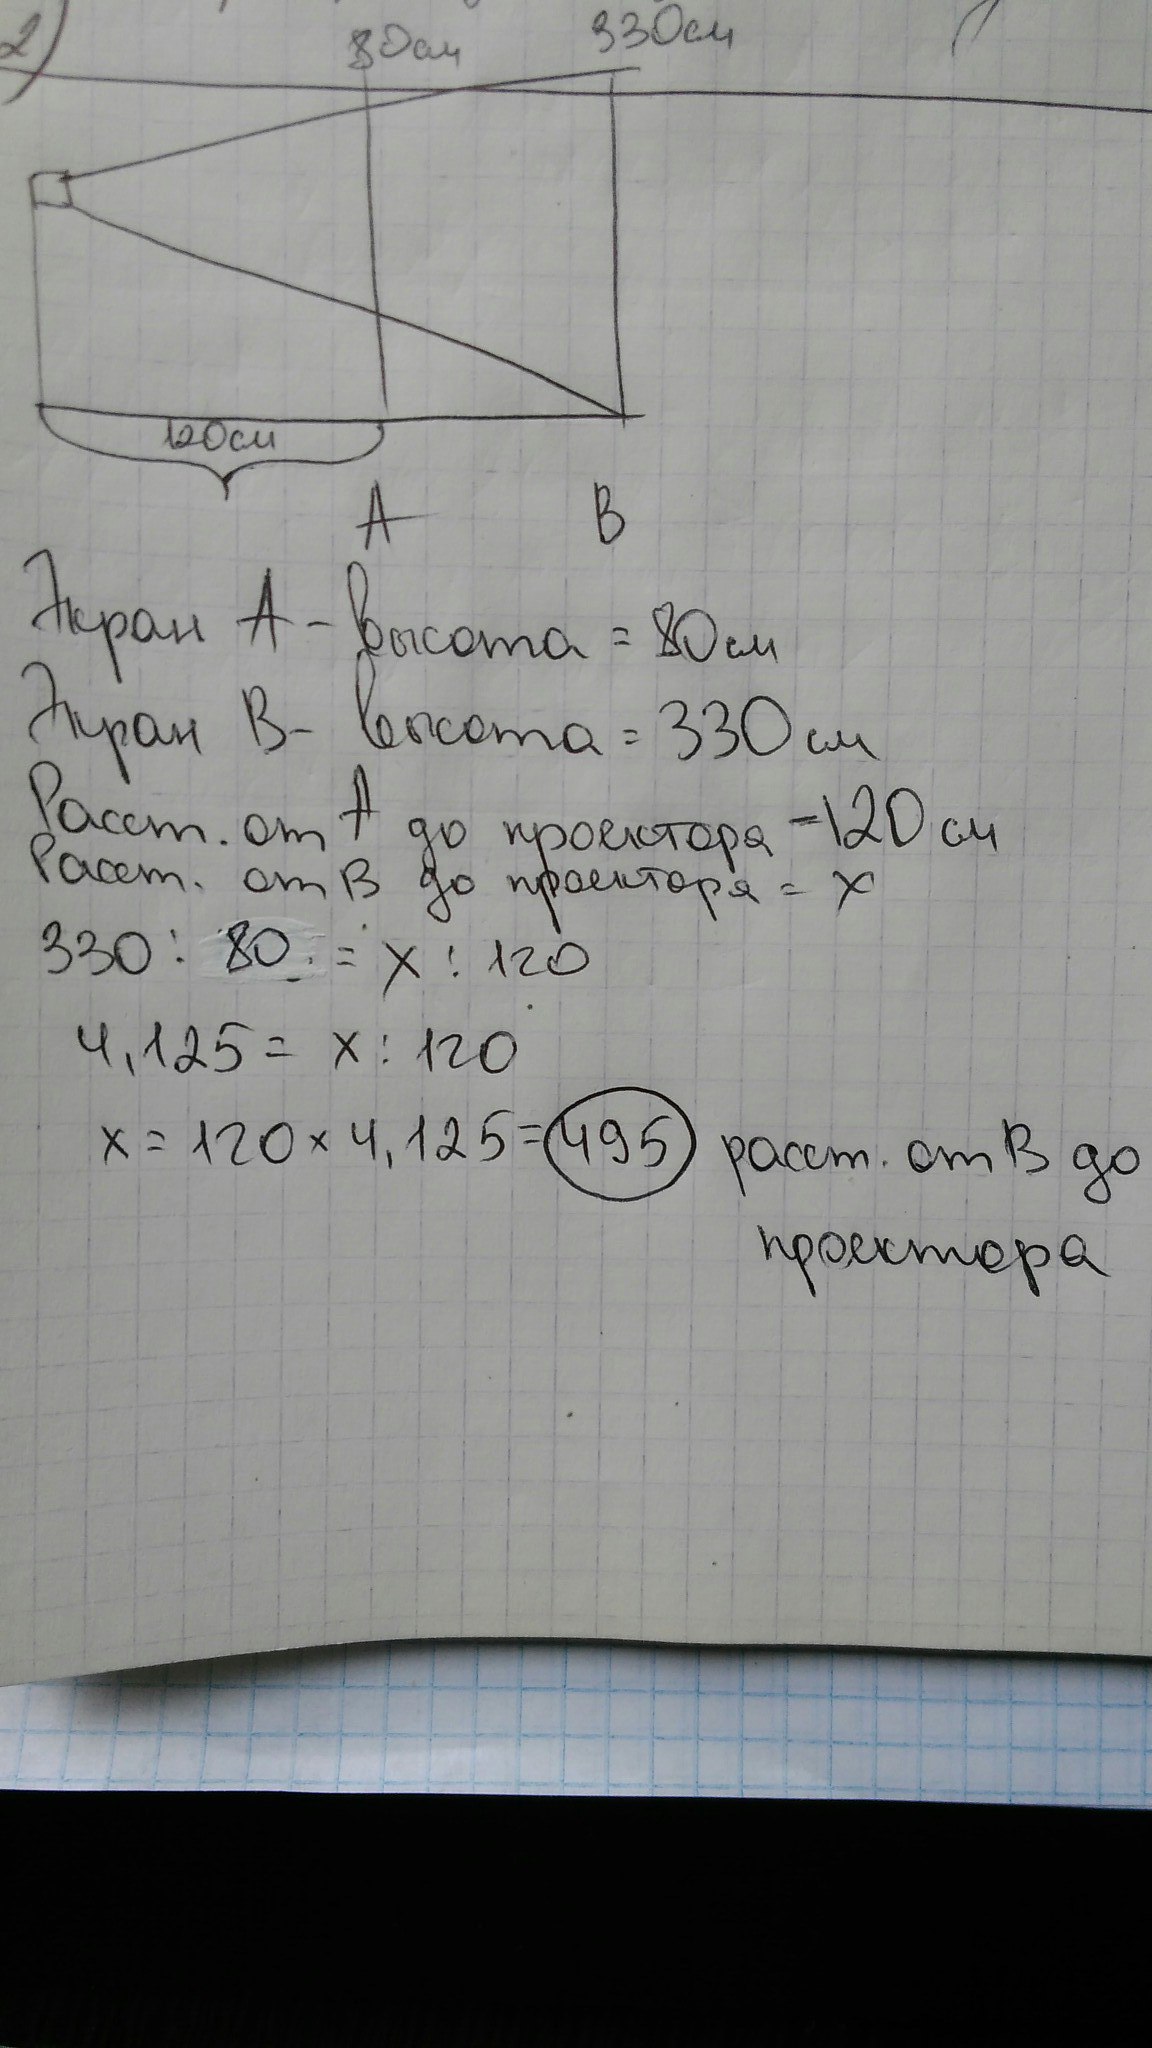 2)
80см
330см
120см
A
B
Экран A - высота = 80см
Экран B - высота = 330см
Расст. от A до проектора - 120см
Расст. от B до проектора = x
330 : 80 = x : 120
4,125 = x : 120
x = 120 × 4,125 = 495 расст. от B до
проектора